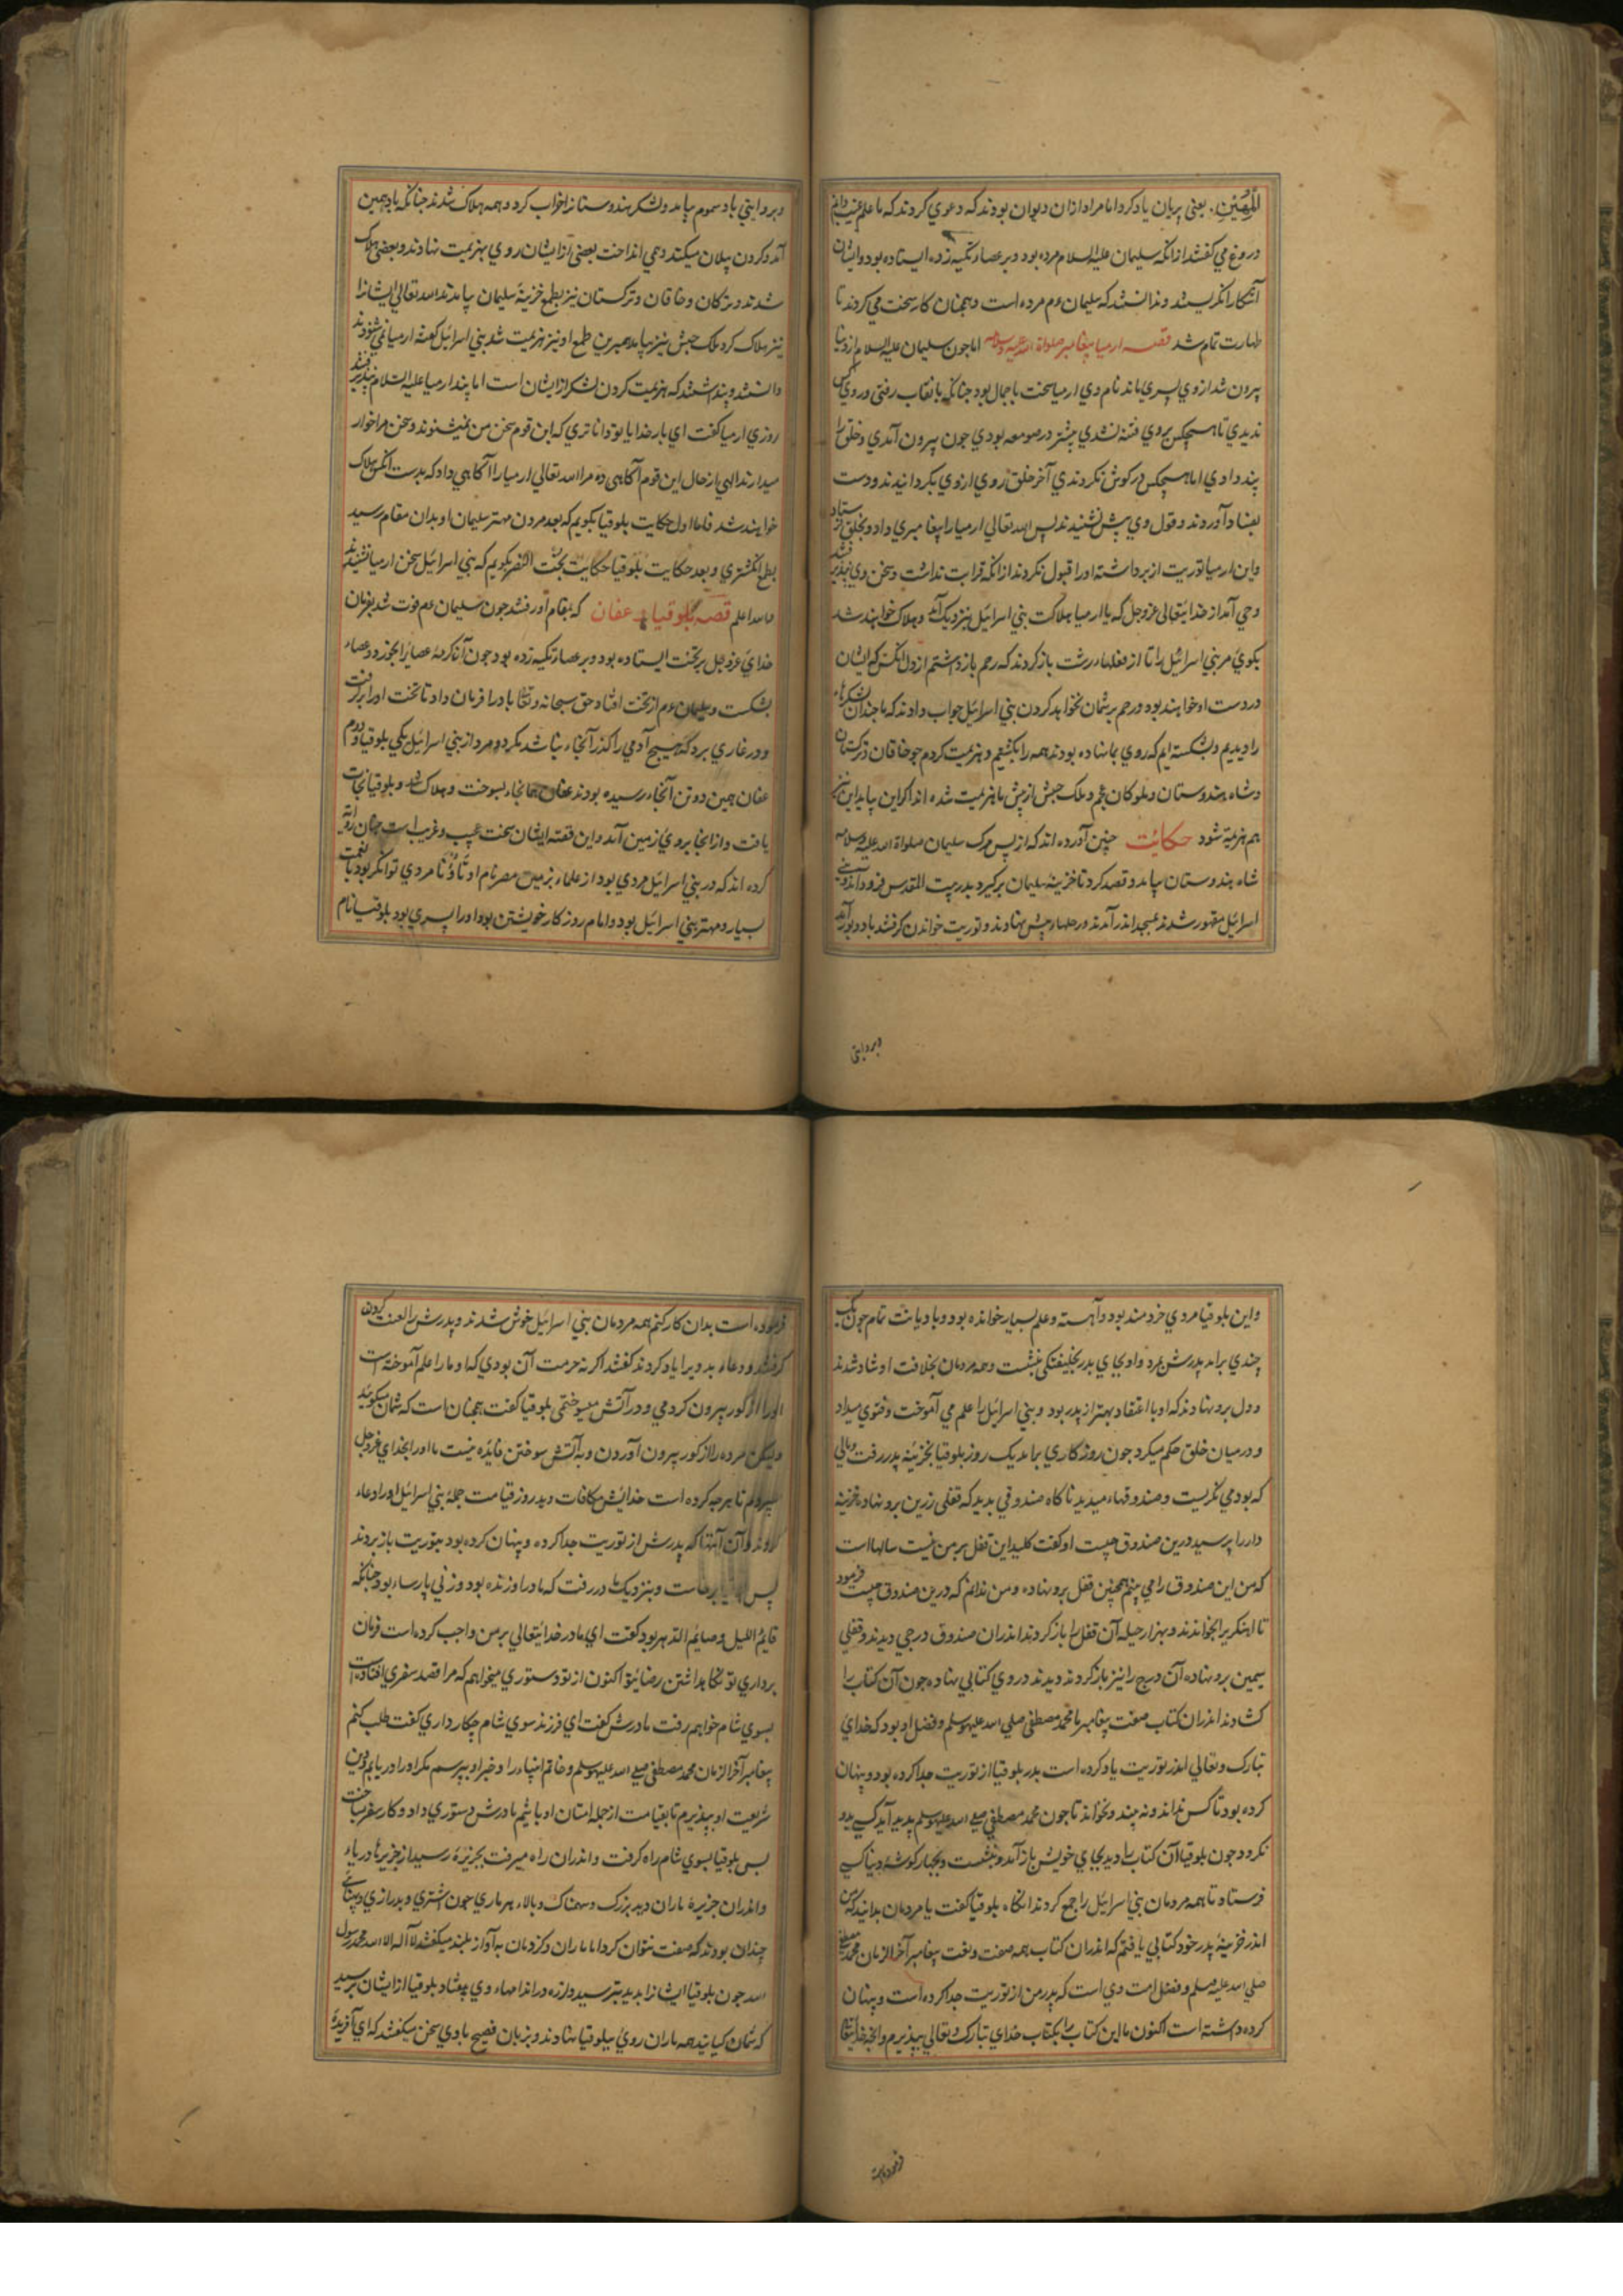 المهین. یعنی پریان یاد کرد اما مراد ازان دیوان بودند که دعوي کردند که ما علم غیب دانیم
دروغ مي کفتند ازانکه سلیمان علیه السلام مرده بود و بر عصا تکیه زده ایستاده بود و ایشان
آشکارا نکریستند و ندانستند که سلیمان عم مرده است و همچنان کار سخت مي کردند تا
طهارت تمام شد قصه ارمیا پیغامبر صلواة الله علیه وسلامه اما جون سلیمان علیه السلام از دنیا
بیرون شد از وي پسري ماند نام وي ارمیا سخت با جمال بود جنانکه با نقاب رفتي و روي کس
ندیدي تا هیچکس بروي فتنه نشدي بیشتر در صومعه بودي جون بیرون آمدي و خلق را
پند دادي اما هیچکس در کوش نکردندي آخر خلق روي ازوي بکردانیدند و دست
بفساد آوردند و قول وي پیش نشنیدند پس الله تعالي ارمیا را پیغامبري داد و بخلق فرستاد
واین ارمیا توریت از بر داشت اورا قبول نکردند ازانکه قرابت نداشت و سخن وي نپذیرفتند
وحي آمد از خدایتعالی عزوجل که یا ارمیا هلاکت بني اسرائیل بنزدیک آمد و هلاک خواهند شد
بکوي مر بني اسرائیل را تا از فعلهاء زشت باز کردند که رحم باز داشتم از دل انکس که ایشان
در دست او خواهند بود و رحم بر شمان نخواهد کردن بني اسرائیل جواب دادند که ما جندان لشکرها
را دیدیم و شکسته ایم که روي بما نهاده بودند همه را بکشتیم و هزیمت کردیم جو خاقان ترکستان
و شاه هندوستان و ملوکان عجم و ملک حبش از پیش ما هزیمت شده اند اکر این بیاید این نیز
هم هزیمة شود حکایت چنین آورده اند که از پس مرک سلیمان صلواة الله علیه وسلامه
شاه هندوستان بیامد و قصد کرد تا خزینه سلیمان برکیرد بدر بیت المقدس فرود آمد و بني
اسرائیل مقهور شدند بمسجد اندر آمدند و رحلها پیش نهادند و توریت خواندن کرفتند باد دبور آمد
و بروایتي
و بروایتي باد سموم بیامد و لشکر هندوستان را خراب کرد و همه هلاک شدند جنانکه باد همین
آمد و کردن پیلان میکند و مي انداخت بعضي از ایشان روي بهزیمت نهادند و بعضي هلاک
شدند و ترکان و خاقان و ترکستان نیز بطمع خزینه سلیمان بیامدند الله تعالي ایشانرا
نیز هلاک کرد ملک حبش نیز بیامد همبرین طمع او نیز هزیمت شد بني اسرائیل کفته ارمیا نمي شنودند
دانستند و پنداشتند که هزیمت کردن لشکر از ایشان است اما پند ارمیا علیه السلام نپذیرفتند
روزي ارمیا کفت اي بار خدایا تو دانا تري که این قوم سخن من نمیشنوند و سخن مرا خوار
میدارند الهي از حال این قوم آکاهي ده مرا الله تعالي ارمیا را آکاهي داد که بدست انکس هلاک
خواهند شد فاما اول حکایت بلوقیا بکویم که بعد مردن مهتر سلیمان او بدان مقام رسید
بطمع انکشتري و بعد حکایت بلوقیا حکایت بخت النصر بکویم که بني اسرائیل سخن ارمیا نشنیدند
والله اعلم قصه بلوقیا و عفان که بمقام او رفتند جون سلیمان عم فوت شد بفرمان
خداي عزوجل بر تخت ایستاده بود و بر عصا تکیه زده بود جون آنکه کرم عصا را بخورد و عصا
بشکست و سلیمان عم از تخت افتاد حق سبحانه و تعالی باد را فرمان داد تا تخت اورا برکرفت
و در غاري برد که هیج آدمي را کذر آنجا نباشد مکر دو مرد از بني اسرائیل یکي بلوقیا و دوم
عفان همین دو تن آنجا رسیده بودند عفان همانجا بسوخت و هلاک شد و بلوقیا نجات
یافت و از انجا بروي زمین آمد و این قصه ایشان سخت عجیب و غریب است جنان روایة
کرده اند که در بني اسرائیل مردي بود از علماء بزمین مصر نام او تاوتا مردي توانکر بود با نعمت
بسیار و مهتر بني اسرائیل بود و امام روزکار خویشتن بود و اورا پسري بود بلوقیا نام
واین بلوقیا مردي خردمند بود و آهسته و علم بسیار خوانده بود و با دیانت تمام جون یک
چندي برامد پدرش بمرد و او بجاي پدر بخلیفتکي بنشست و همه مردمان بخلافت او شاد شدند
و دل برو نهادند که او با اعتقاد بهتر از پدر بود و بني اسرائیل را علم مي آموخت و فتوي میداد
و درمیان خلق حکم میکرد جون روزکاري برامد یک روز بلوقیا بخزینه پدر رفت و مالي
که بود مي نکریست و صندوقهاء میدید ناکاه صندوقي بدید که قفلي زرین برو نهاده خزینه
دار را پرسید درین صندوق چیست او کفت کلید این قفل بر من نیست سالها است
که من این صندوق را مي بینم همچنین قفل برو نهاده و من ندانم که درین صندوق چیست فرمود
تا اهنکر را بخواندند و بهزار حیله آن قفل را باز کردند اندران صندوق درجي دیدند و قفلي
سیمین برو نهاده آن درج را نیز باز کردند دیدند دروي کتابي نهاده جون آن کتاب را
کشادند اندران کتاب صفت پیغامبر ما محمد مصطفی صلي الله علیه وسلم و فضل او بود که خداي
تبارک و تعالي اندر توریت یاد کرده است پدر بلوقیا از توریت جدا کرده بود و پنهان
کرده بود تا کس نداند و نه بیند و نخواند تا جون محمد مصطفی صلي الله علیه وسلم پدید آید کسي بدو
نکرود جون بلوقیا آن کتاب را دید بجاي خویش باز آمد و بنشست و بچهار کوشه دنیا کس
فرستاد تا همه مردمان بني اسرائیل را جمع کردند انکاه بلوقیا کفت یا مردمان بدانید که من
اندر خزینه پدر خود کتابي یافتم که اندران کتاب همه صفت و نعت پیغامبر آخر الزمان محمد مصطفی
صلي الله علیه وسلم و فضل امت وي است که پدر من از توریت جدا کرده است و پنهان
کرده داشته است اکنون ما این کتاب را بکتاب خداي تبارک و تعالي بپذیرم و انچه خدایتعالی
فرموده است
فرموده است بدان کار کنم همه مردمان بني اسرائیل خوش شدند و پدرش را لعنت کردن
کرفتند و دعاء بد ویرا یاد کردند کفتند اکر نه حرمت آن بودي که او مارا علم آموخته است
اورا از کور بیرون کردمي و در آتش میسوختمي بلوقیا کفت همچنان است که شمان میکویید
ولیکن مرده را از کور بیرون آوردن و به آتش سوختن فایده نیست ما اورا بخداي عزوجل
سپردیم تا هرچه کرده است خدایش مکافات دهد روز قیامت جمله بني اسرائیل اورا دعاء
کردند و آن آیتها که پدرش از توریت جدا کرده و پنهان کرده بود بتوریت باز بردند
پس بلوقیا برخاست و بنزدیک مادر رفت که مادر او زنده بود و زني پارساء بود جنانکه
قایم اللیل و صایم الدهر بود کفت اي مادر خدایتعالي بر من واجب کرده است فرمان
برداري تو نکاهداشتن رضاي تو اکنون از تو دستوري میخواهم که مرا قصد سفري افتاده است
بسوي شام خواهم رفت مادرش کفت اي فرزند سوي شام چکار داري کفت طلب کنم
پیغامبر آخر الزمان محمد مصطفی صلي الله علیه وسلم و خاتم انبیاء را و خبر او بپرسم مکر اورا دریابم و دین
شریعت او بپذیرم تا بقیامت از جمله امتان او باشم مادرش دستوري داد و کار سفر بساخت
پس بلوقیا بسوي شام راه کرفت و اندران راه میرفت بجزیره رسید از جزیرهاء دریاء
و اندران جزیره ماران دید بزرک و سهمناک و بالاء هر ماري جون اشتري و بدرازي و پهناي
چندان بودند که صفت نتوان کرد اما ماران و کژدمان به آواز بلند میکفتند لا اله الا الله محمد رسول
الله جون بلوقیا ایشانرا بدید بترسید و لرزه در اندامهاء وي بیفتاد بلوقیا از ایشان پرسید
که شمان کیانید همه ماران روي ببلوقیا نهادند و بزبان فصیح با وي سخن میکفتند که اي آفریده